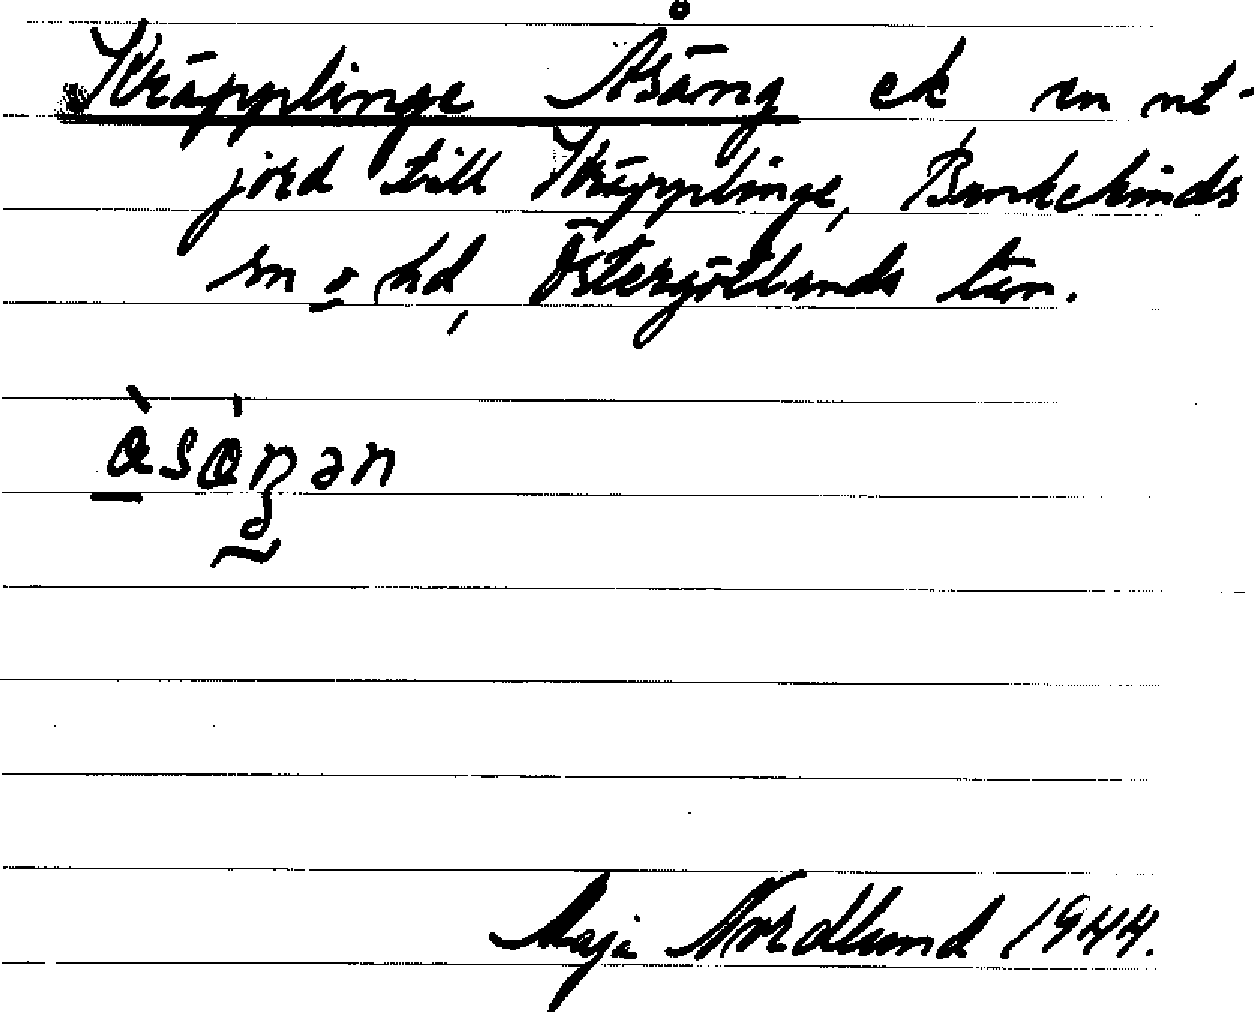 Kräpplinge Åsäng ek en ut-
jord till Kräpplinge, Bankekinds
sn o hd, Östergötlands län.
Maja Nordlund 1944.